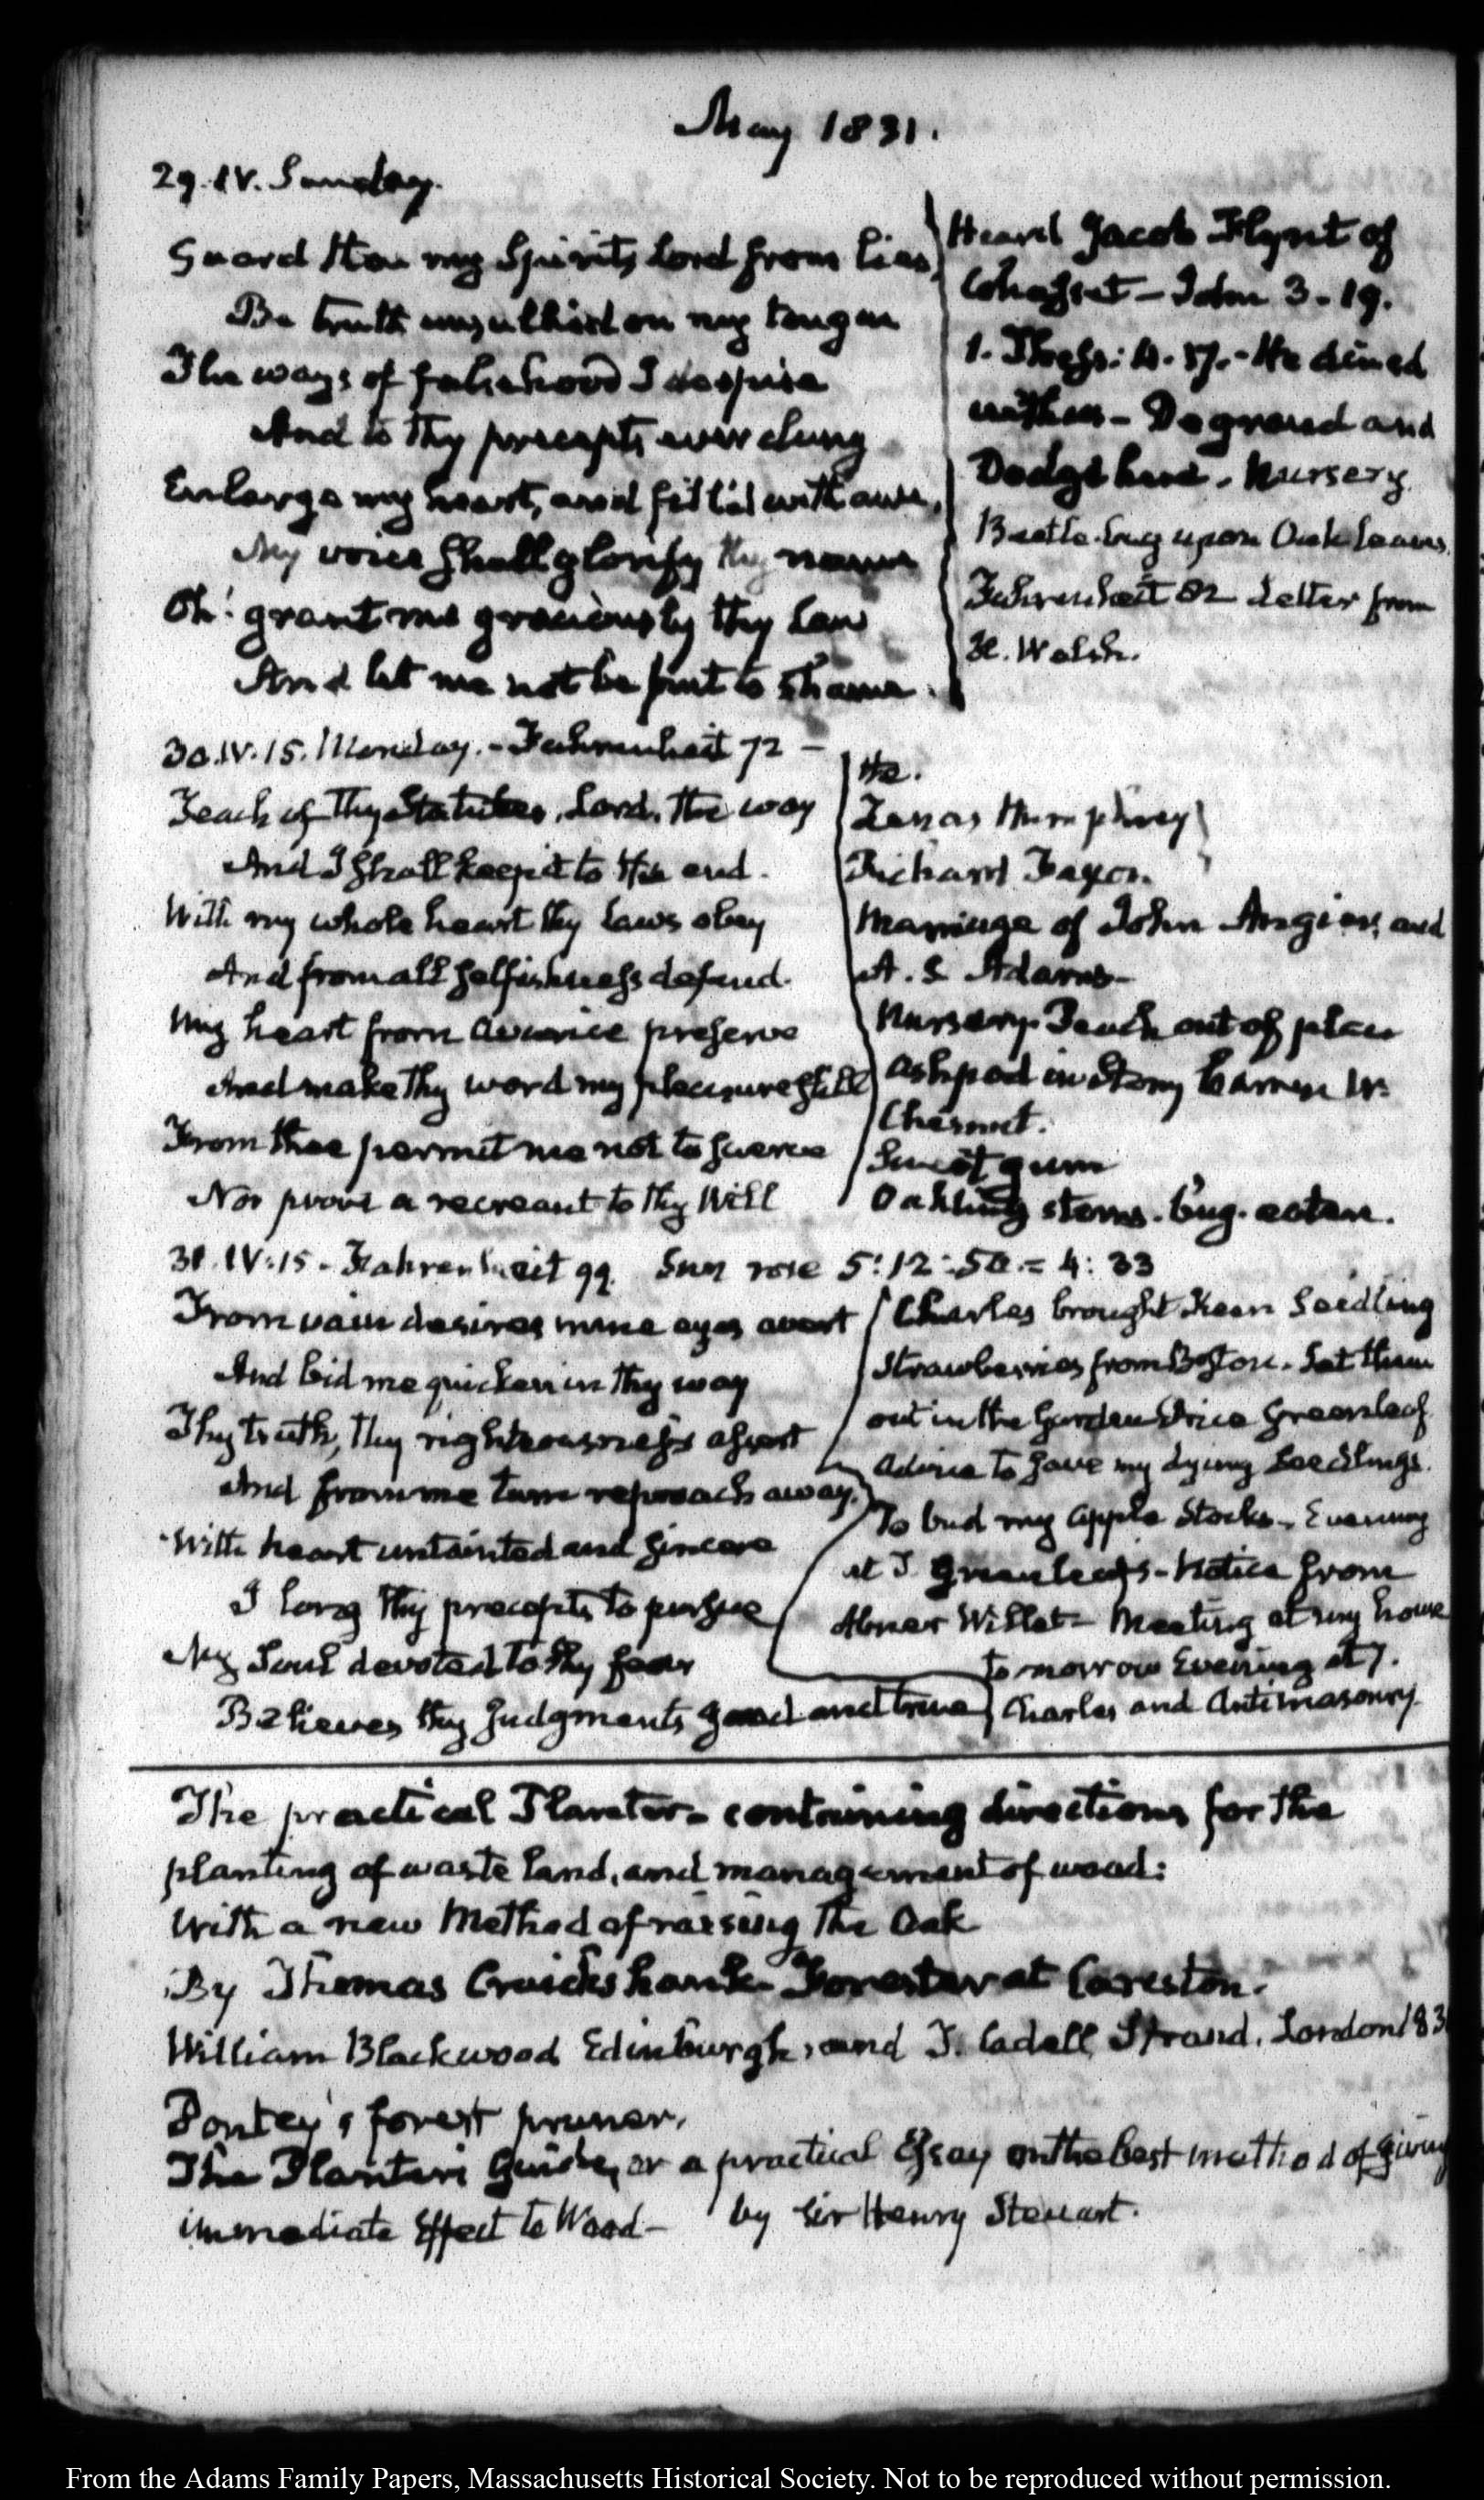 May 1831.
29. IV. Sunday.
Guard thou my Spirit, Lord from lies,
Be truth unsullied on my tongue
The ways of falsehood I despise
And to thy precepts ever clung
Enlarge my heart, and fill'd with awe,
My voice shall glorify thy name
Oh! grant me graciously thy Law
And let me not be put to shame.
Heard Jacob Flynt of
Cohasset – John 3. 19.
1. Thess: 4. 17. – He dined
with us – Degrand and
Dodge here. Nursery
Beetle-bug upon Oak leaves.
Fahrenheit 82 Letter from
Walsh.
30. IV. 15. Monday. – Fahrenheit 72 –
Teach of thy Statutes, Lord, the way
And I shall keep it to the end.
With my whole heart thy laws obey
And from all selfishness defend.
My heart from avarice preserve
And make thy word my pleasure still
From thee permit me not to swerve
Nor prove a recreant to thy Will
Humphrey
Richard
Marriage of John Angier, and
A. S Adams –
Nursery. Peach out of place
in Stony
Chesnut.
Sweet gum
Oakling stems. bug. eaten.
31. IV: 15 – Fahrenheit 99. Sun rose 5: 12: 50. = 4: 33
From vain desires mine eyes avert
And bid me quicken in thy way
Thy truth, thy righteousness assert
And from me turn reproach away.
With heart untainted and sincere
I long thy precepts to pursue
My Soul devoted to thy fear
Believes thy judgments good and true
Charles brought Keen Seedling
Strawberries from Boston. Set them
out in the Garden Price Greenleaf
advice to save my dying Seedlings.
To bud my apple Stocks – Evening
at T. Greenleaf's – Notice from
Abner Willet – Meeting at my house
tomorrow Evening at 7.
Charles and Antimasonry.
The practical Planter – containing directions for the
planting of waste land, and management of wood:
With a new Method of raising the Oak
By Thomas Cruickshank – Forester at Careston.
William Blackwood Edinburgh, and T. Cadell, Strand, London 183
Pontey's forest pruner.
The Planters Guide, or a practical Essay on the best method of giving
immediate Effect to Wood – by Sir Henry Steuart.
From the Adams Family Papers, Massachusetts Historical Society. Not to be reproduced without permission.